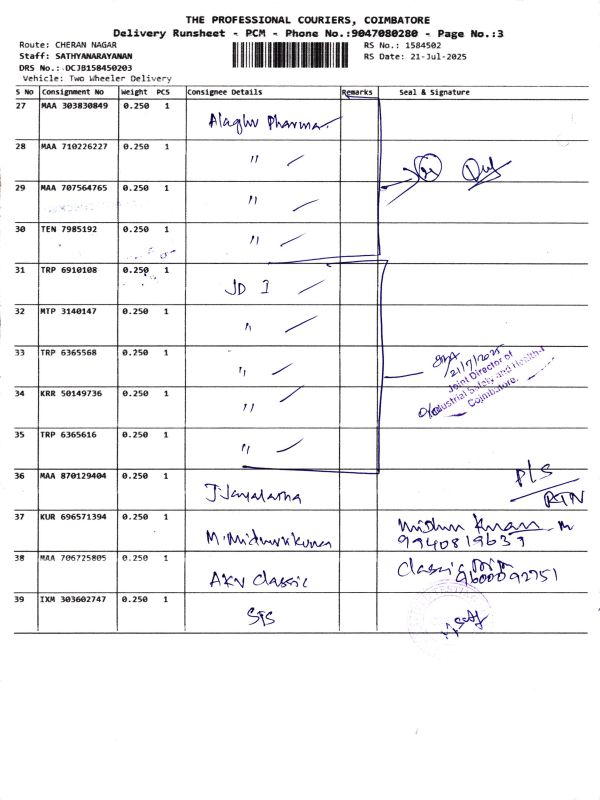 THE PROFESSIONAL COURIERS, COIMBATORE
Delivery Runsheet - PCM - Phone No.:9047080280 - Page No.:3
Route: CHERAN NAGAR
RS No.: 1584502
Staff: SATHYANARAYANAN
RS Date: 21-Jul-2025
DRS No.: DCJB158450203
Vehicle: Two Wheeler Delivery
S No Consignment No Weight PCS Consignee Details Remarks Seal & Signature
27 MAA 303830849 0.250 1 Alaghu Pharma
28 MAA 710226227 0.250 1 "
29 MAA 707564765 0.250 1 "
30 TEN 7985192 0.250 1 "
31 TRP 6910108 0.250 1 JD I
32 MTP 3140147 0.250 1 "
33 TRP 6365568 0.250 1 "
21/7/2025
Joint Director of
Industrial Safety and Health-I
Coimbatore.
34 KRR 50149736 0.250 1 "
35 TRP 6365616 0.250 1 "
36 MAA 870129404 0.250 1 P/S
RTN
37 KUR 696571394 0.250 1
9940819639
38 MAA 706725805 0.250 1 AKV Classic Classic
9600092751
39 IXM 303602747 0.250 1 STS